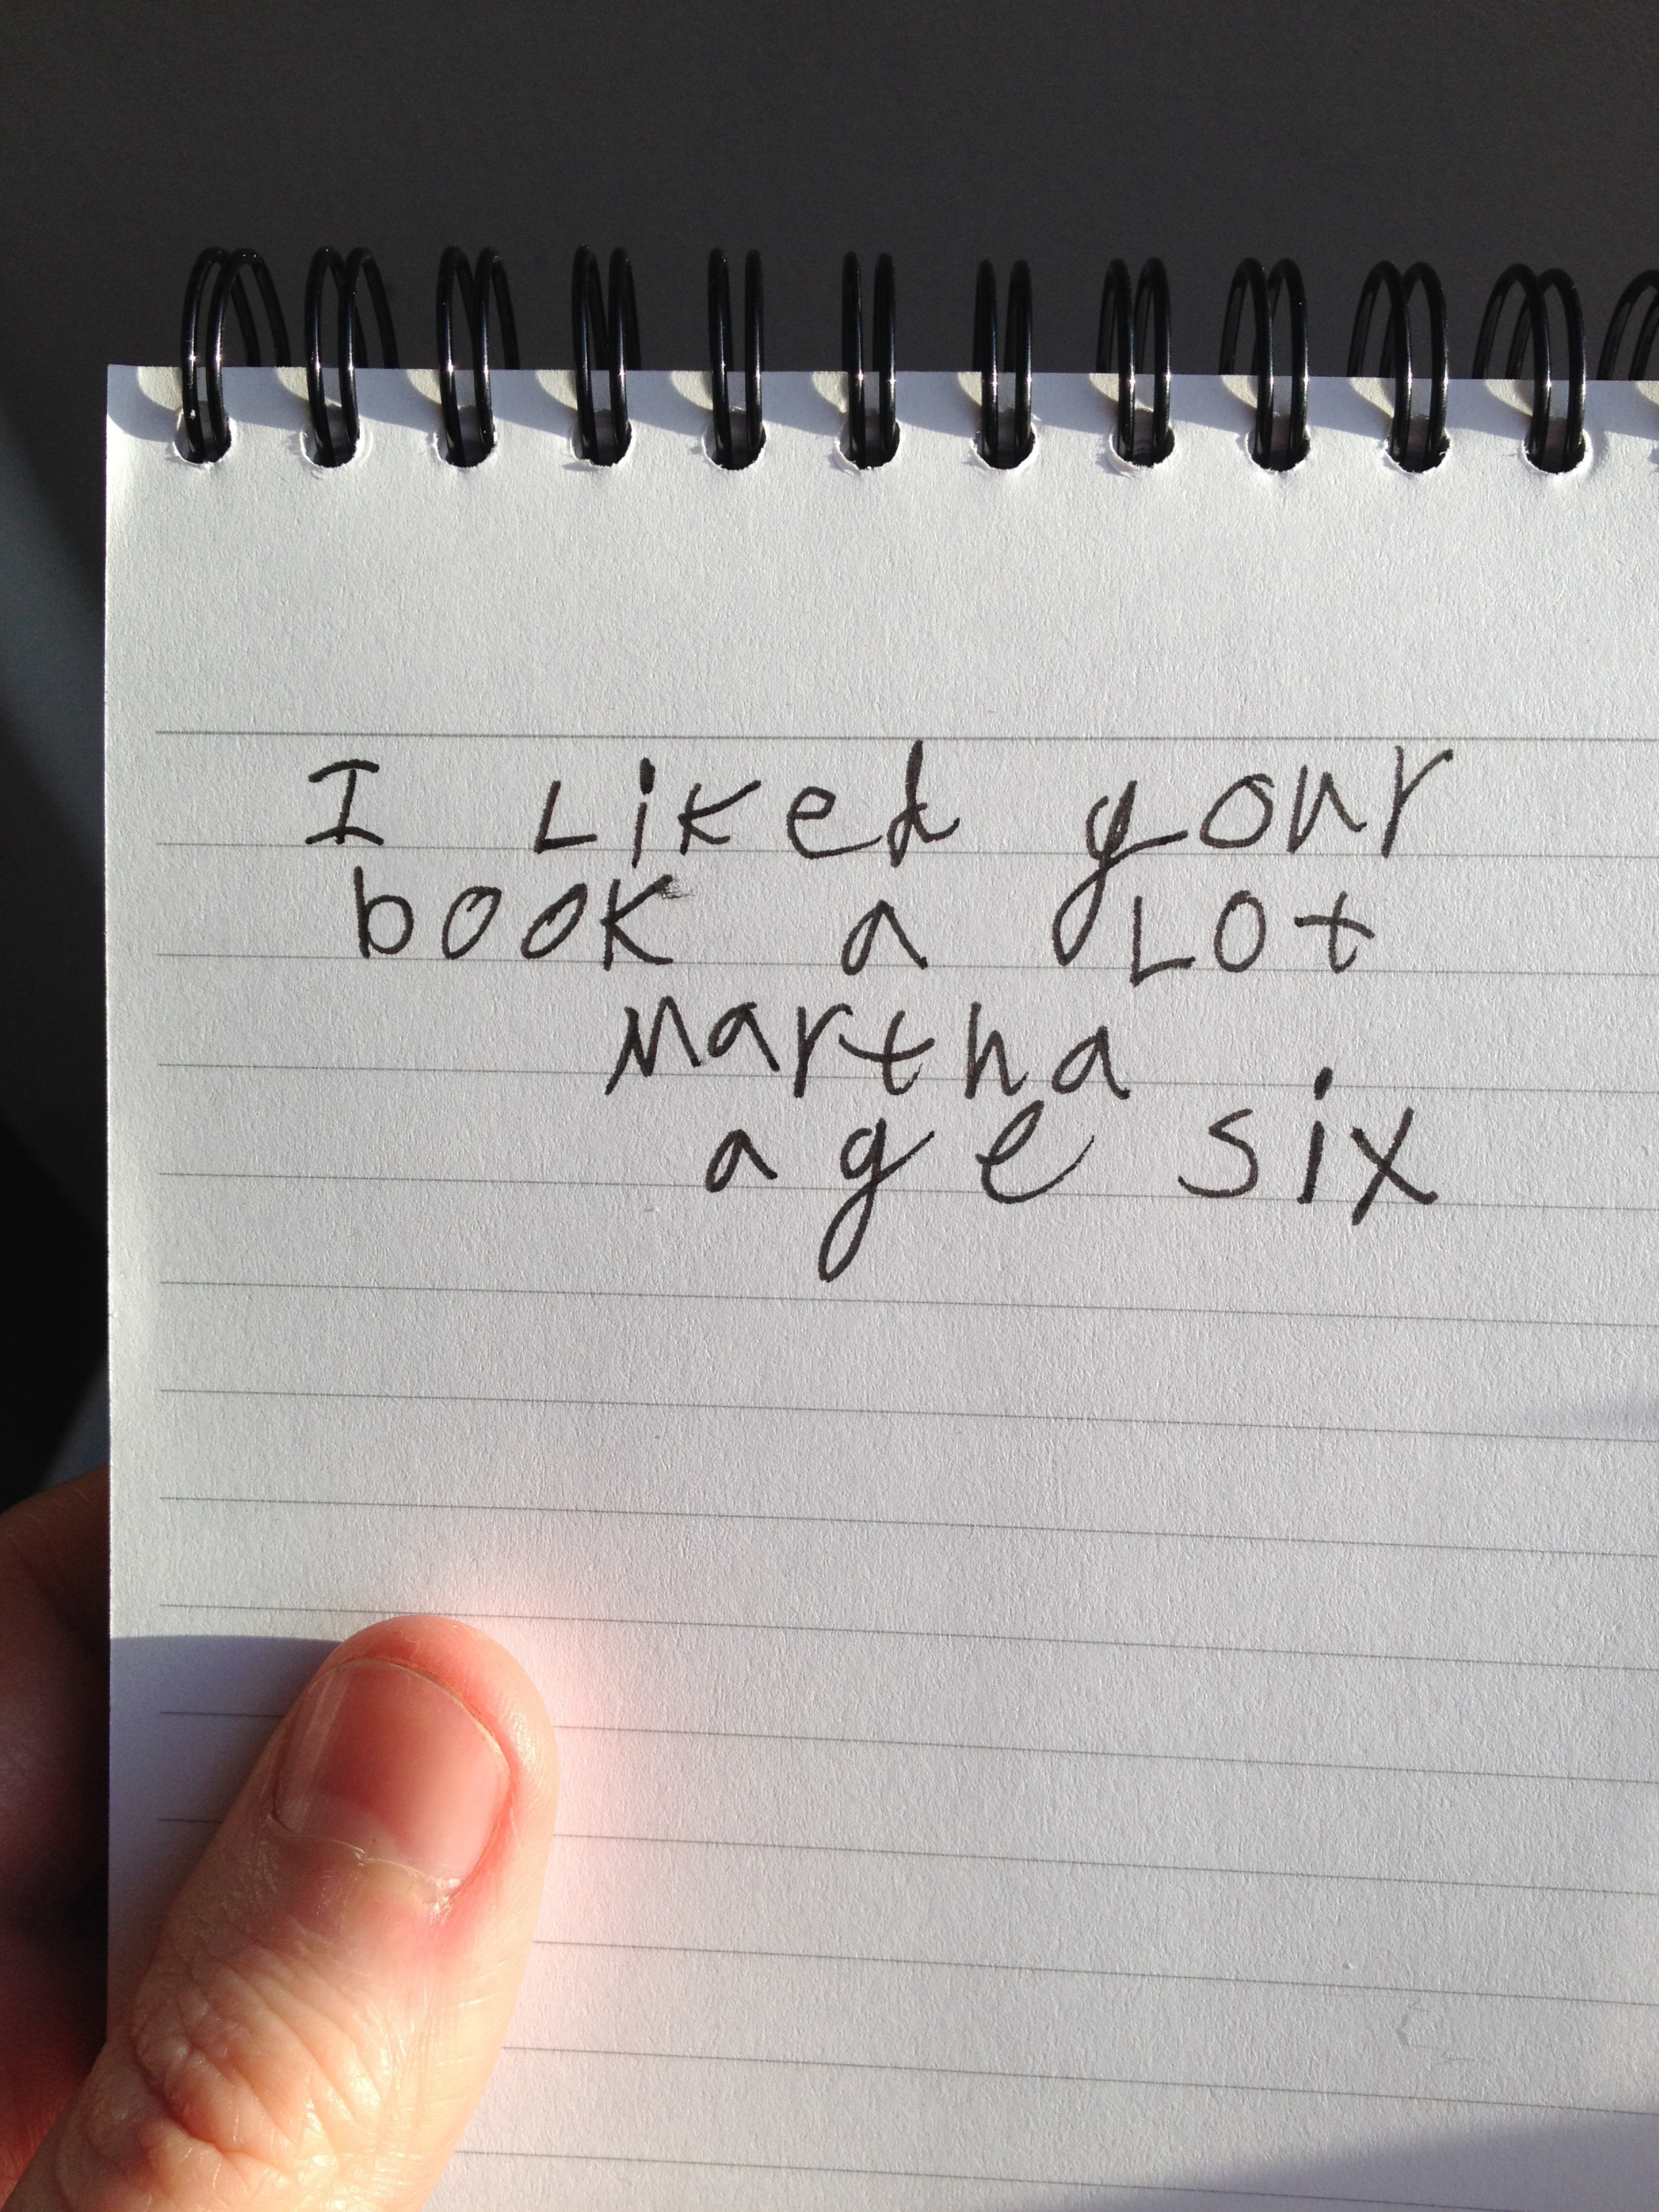 I Liked your
book a Lot
Martha
age six